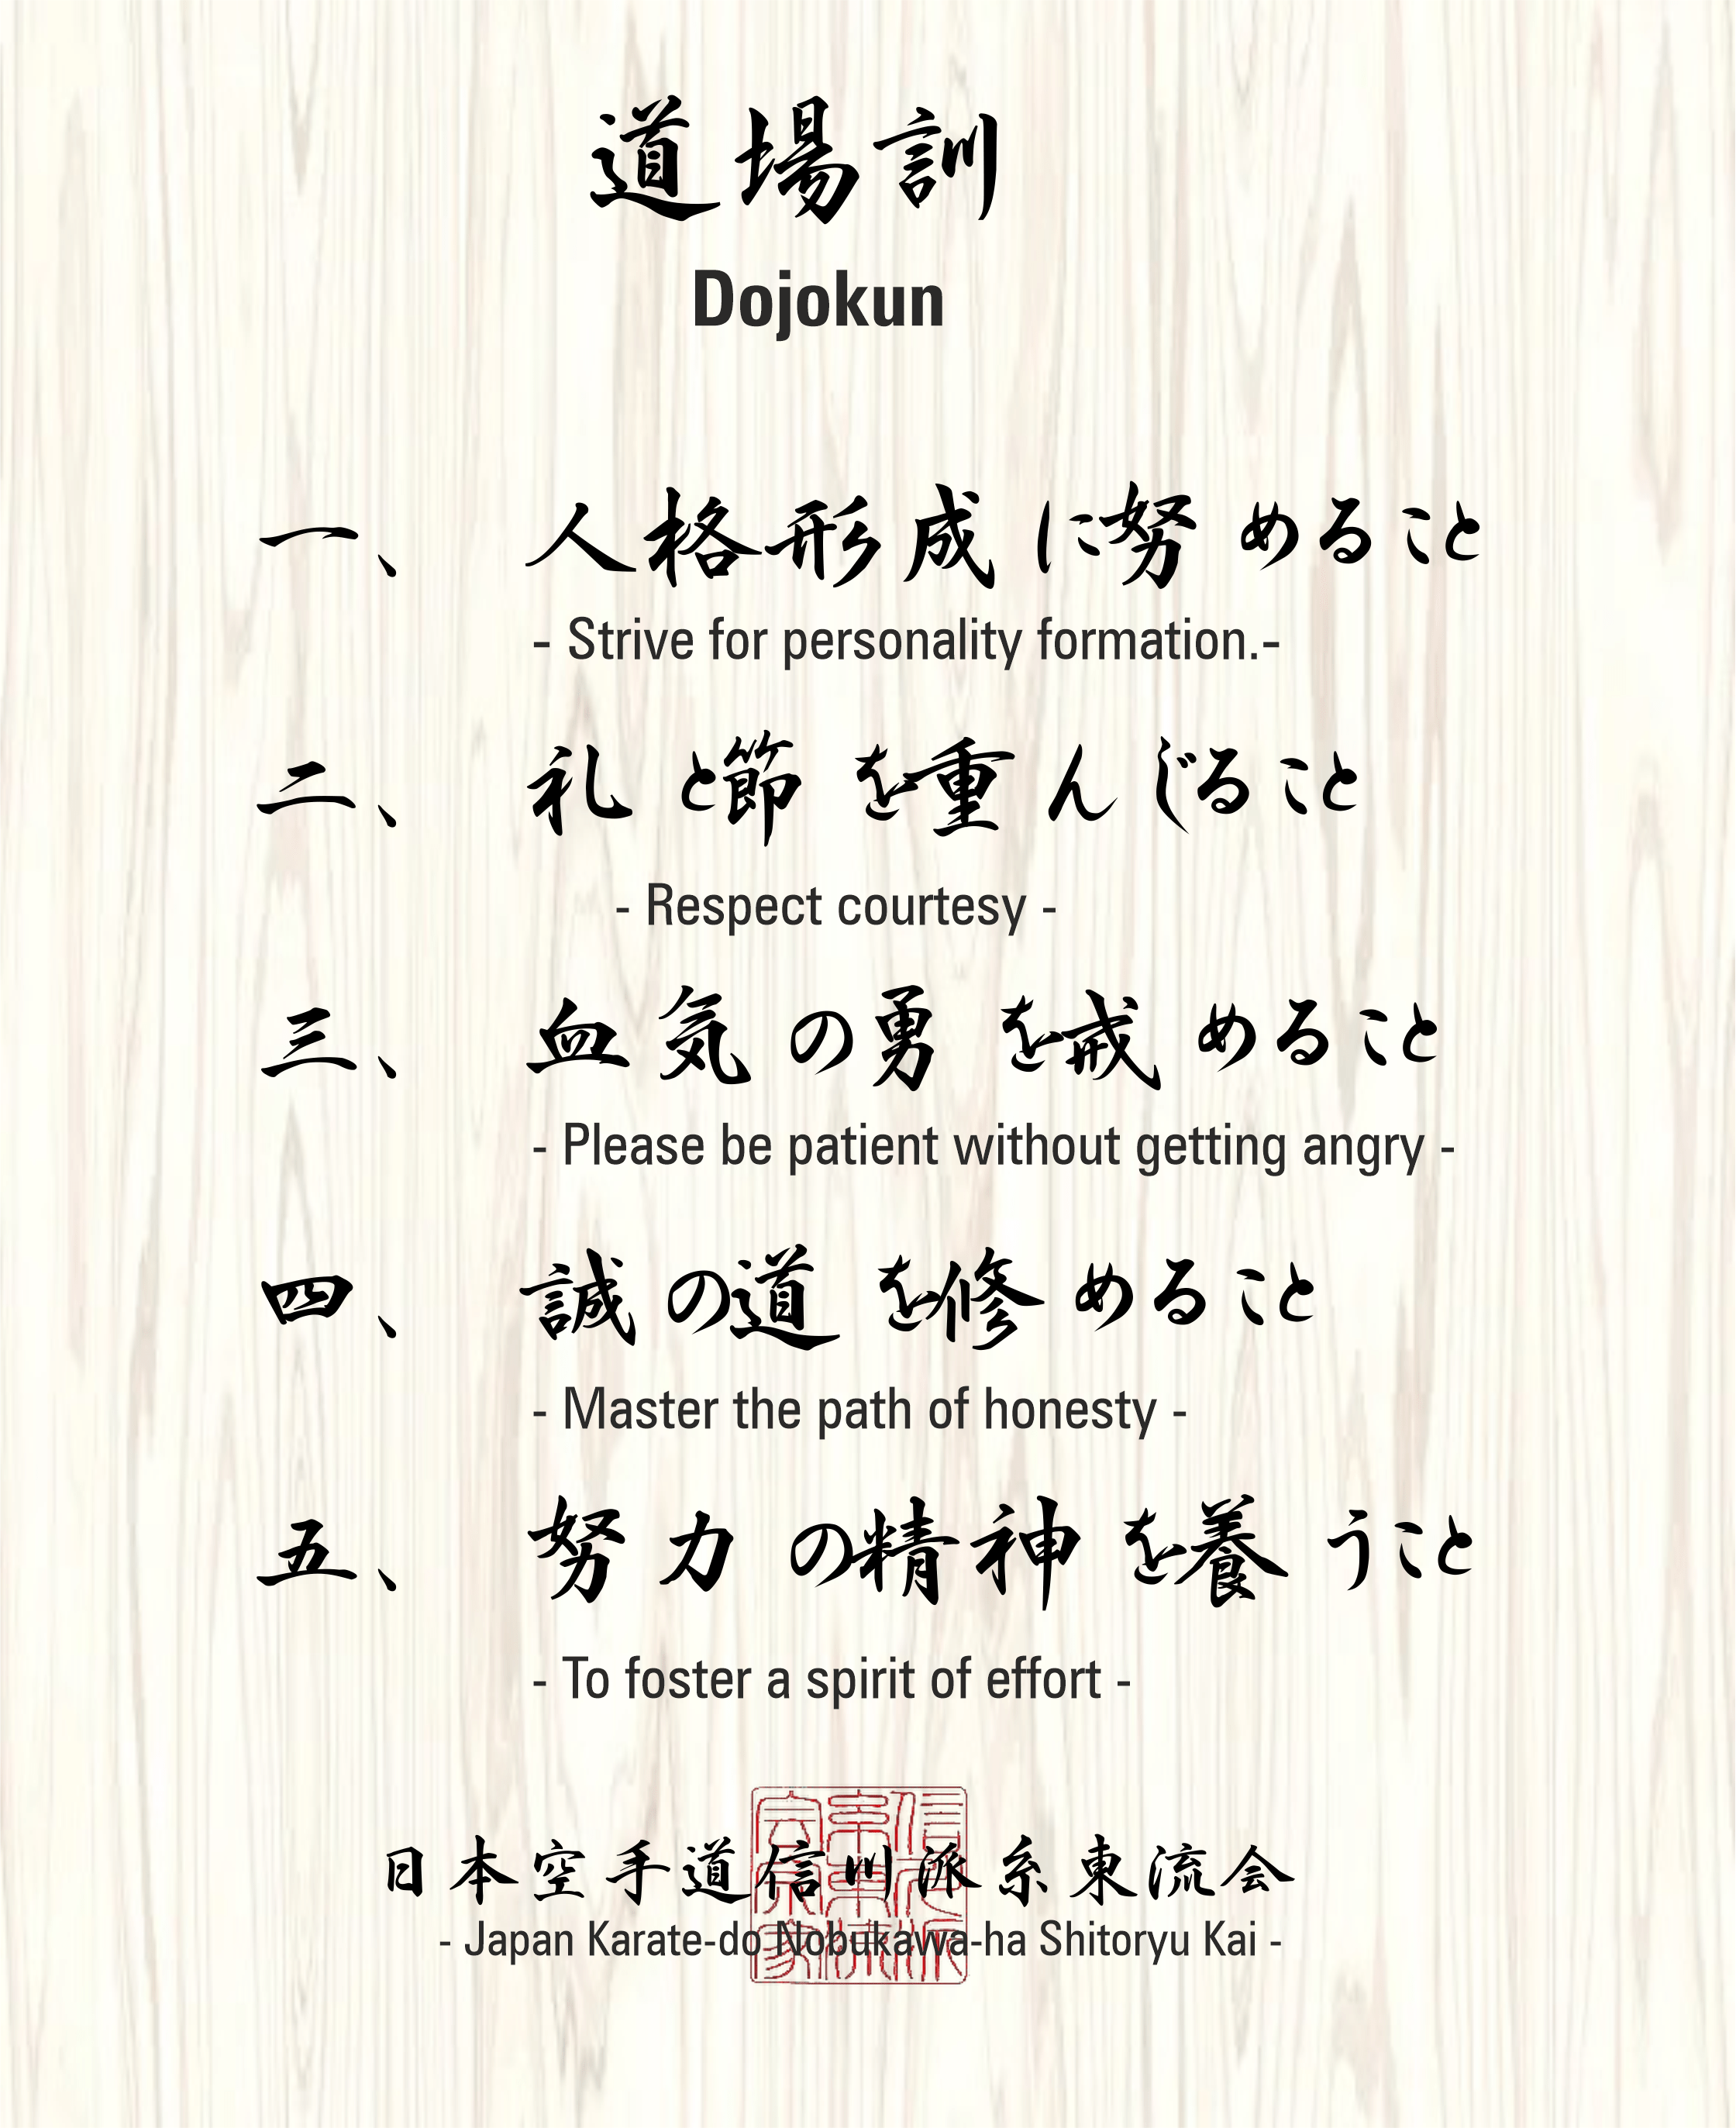 道場訓
Dojokun
一、 人格形成に努めること
- Strive for personality formation.-
二、 礼と節を重んじること
- Respect courtesy -
三、 血気の勇を戒めること
- Please be patient without getting angry -
四、 誠の道を修めること
- Master the path of honesty -
五、 努力の精神を養うこと
- To foster a spirit of effort -
日本空手道信川派糸東流会
- Japan Karate-do Nobukawa-ha Shitoryu Kai -